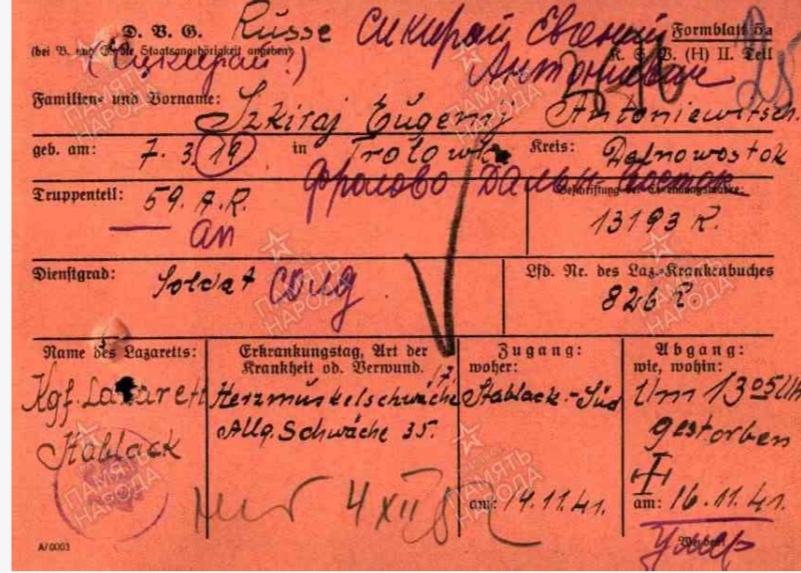 D. V. G. Russe Сикирай Евгений
Formblatt 5a
(bei V. und Volksdeutsche Staatsangehörigkeit angeben)
K. G. V. (H) II. Teil
Антониевич
Familien- und Vorname:
Szkiraj Eugenij Antoniewitsch.
geb. am: 7.3.19 in Frolowka Kreis: Dalnowostok
Фролово Дальн. Восток
Truppenteil: 59. A.R.
ап
13193 R.
Dienstgrad: Soldat солд
Lfd. Nr. des Laz.-Krankenbuches
826 R
Name des Lazaretts:
Kgf. Lazarett
Stablack
Erkrankungstag, Art der
Krankheit od. Verwund.
Herzmuskelschwäche
Allg. Schwäche 35.
Zugang:
woher:
Stablack-Süd
am: 14.11.41.
Abgang:
wie, wohin:
Um 13 05 Uhr
gestorben
am: 16.11.41.
4 XII
умер
A/0003
ПАМЯТЬ
НАРОДА